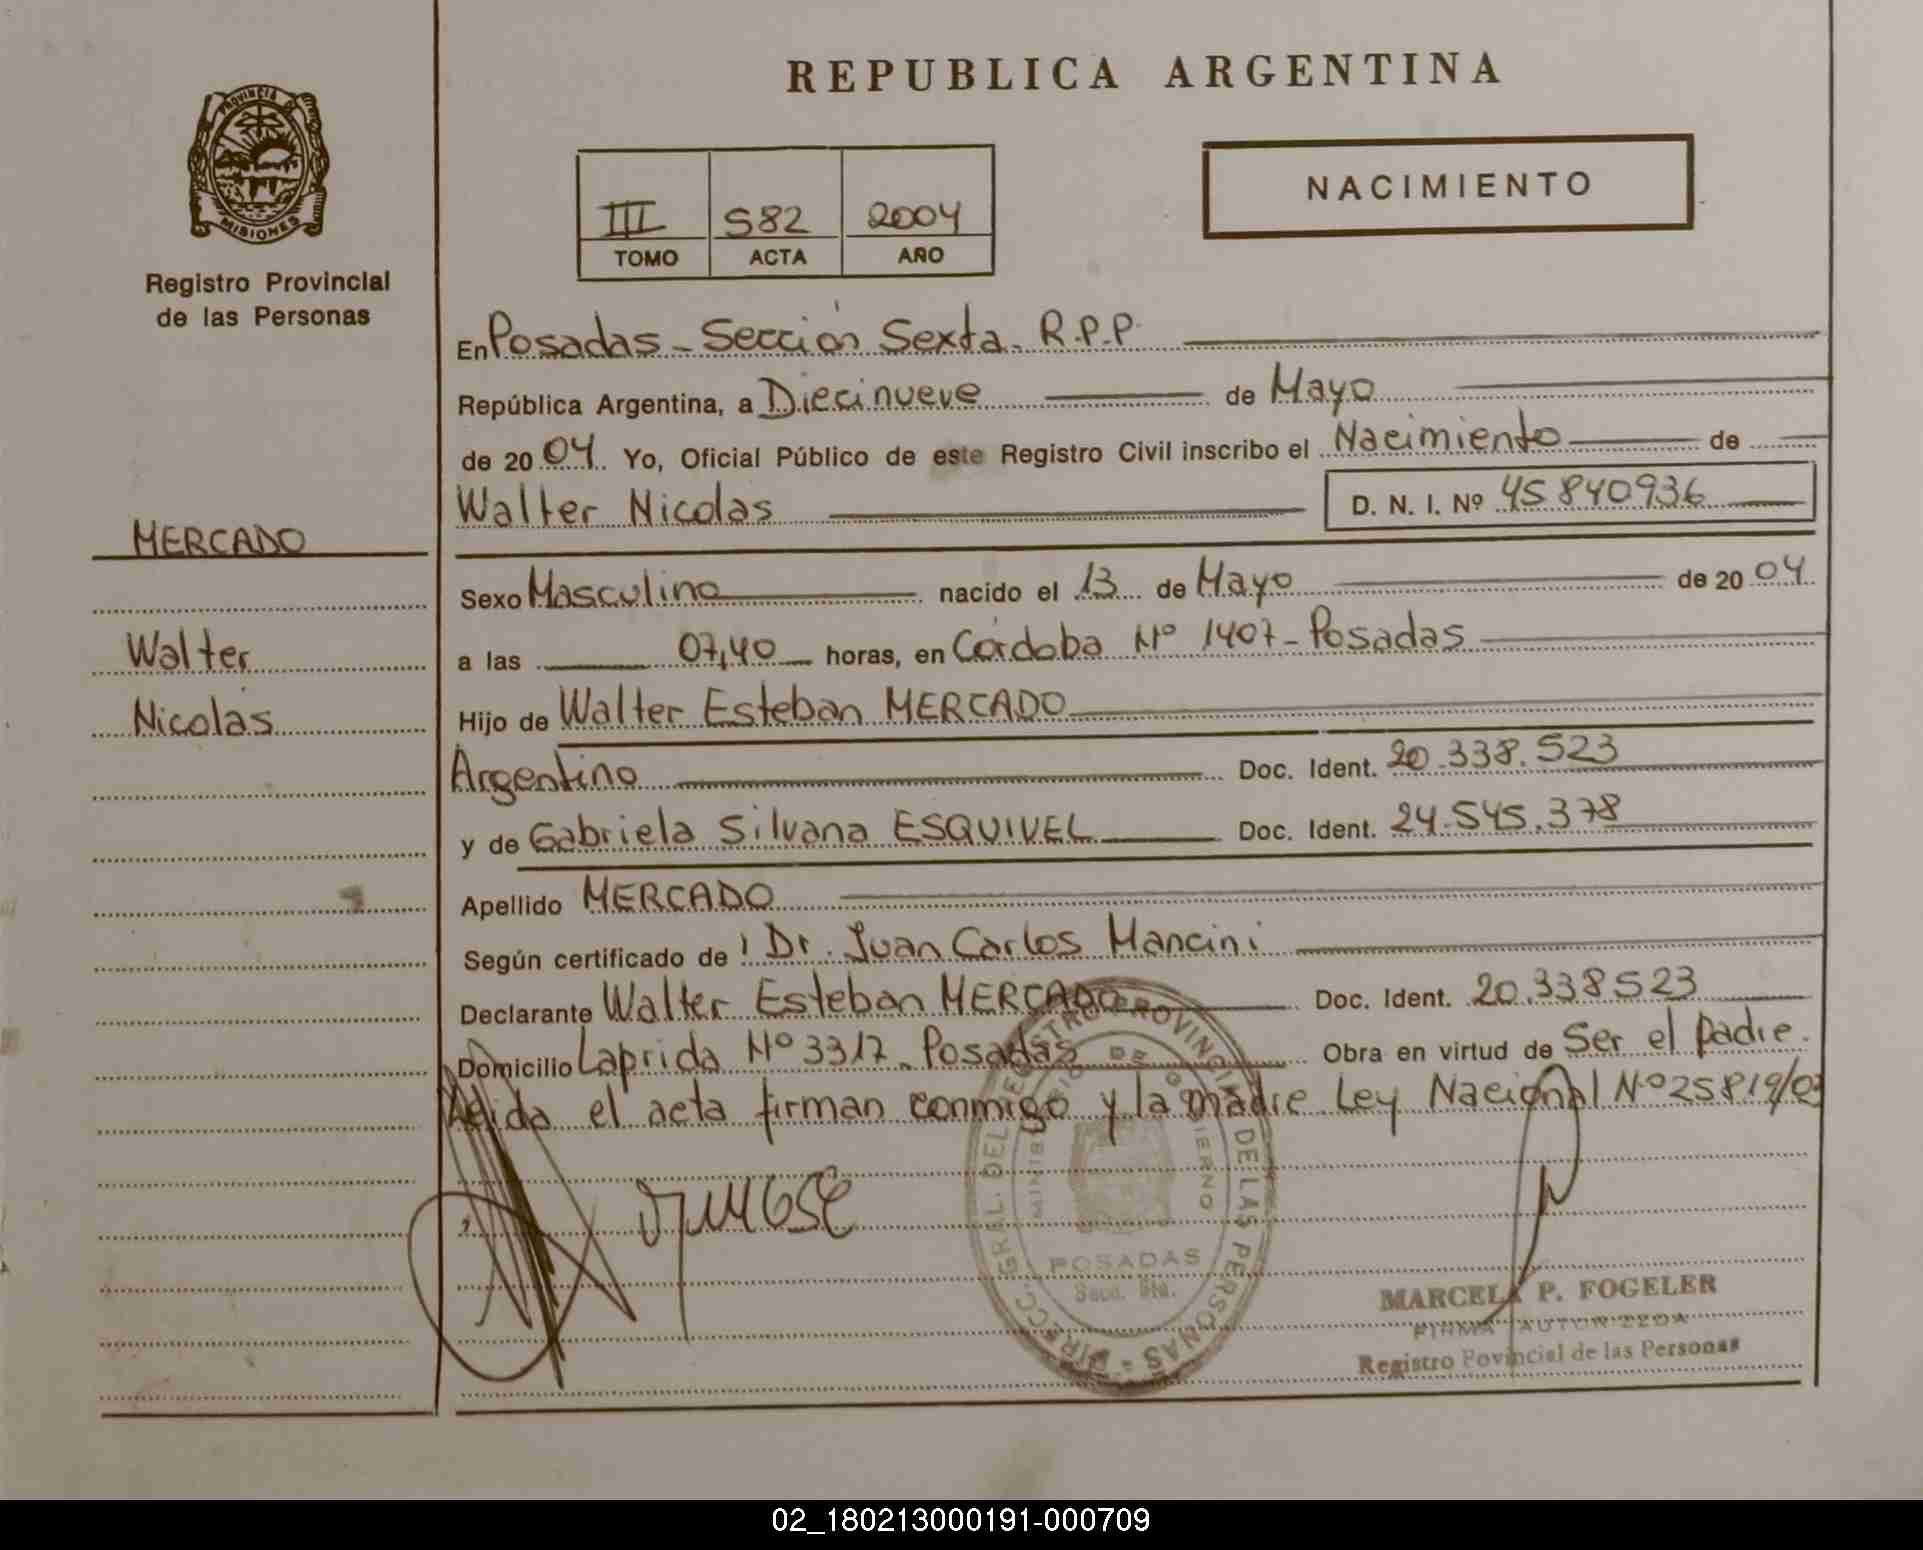 REPUBLICA ARGENTINA
PROVINCIA DE
MISIONES
Registro Provincial
de las Personas
NACIMIENTO
III 582 2004
TOMO ACTA AÑO
En Posadas - Sección Sexta - R.P.P.
República Argentina, a Diecinueve de Mayo
de 2004. Yo, Oficial Público de este Registro Civil inscribo el Nacimiento de
Walter Nicolas D. N. I. Nº 45840936
MERCADO
Walter
Nicolás
Sexo Masculino nacido el 13 de Mayo de 2004
a las 07,40 horas, en Córdoba Nº 1407 - Posadas
Hijo de Walter Esteban MERCADO
Argentino Doc. Ident. 20.338.523
y de Gabriela Silvana ESQUIVEL Doc. Ident. 24.545.378
Apellido MERCADO
Según certificado de Dr. Juan Carlos Mancini
Declarante Walter Esteban MERCADO Doc. Ident. 20.338523
Domicilio Laprida Nº 3317 - Posadas Obra en virtud de Ser el padre.
Leida el acta firman conmigo y la madre Ley Nacional Nº 25819/03
DIRECC. GRAL. DEL REGISTRO PROVINCIAL DE LAS PERSONAS
MINISTERIO DE GOBIERNO
POSADAS
Secc. 6ta.
MARCELA P. FOGELER
FIRMA AUTORIZADA
Registro Povincial de las Personas
02_180213000191-000709